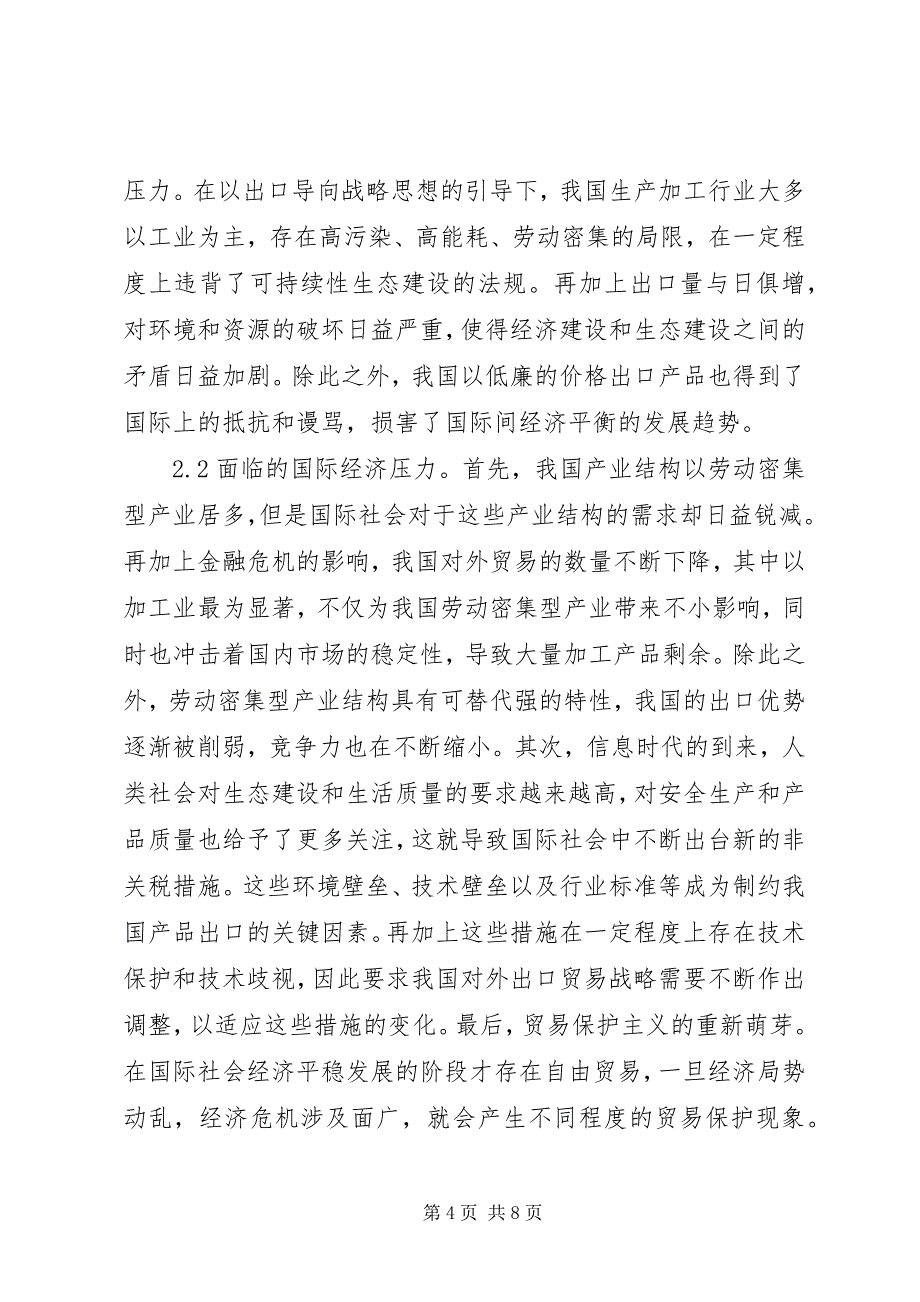 压力。在以出口导向战略思想的引导下，我国生产加工行业大多
以工业为主，存在高污染、高能耗、劳动密集的局限，在一定程
度上违背了可持续性生态建设的法规。再加上出口量与日俱增，
对环境和资源的破坏日益严重，使得经济建设和生态建设之间的
矛盾日益加剧。除此之外，我国以低廉的价格出口产品也得到了
国际上的抵抗和谩骂，损害了国际间经济平衡的发展趋势。
2.2 面临的国际经济压力。首先，我国产业结构以劳动密集
型产业居多，但是国际社会对于这些产业结构的需求却日益锐减。
再加上金融危机的影响，我国对外贸易的数量不断下降，其中以
加工业最为显著，不仅为我国劳动密集型产业带来不小影响，同
时也冲击着国内市场的稳定性，导致大量加工产品剩余。除此之
外，劳动密集型产业结构具有可替代强的特性，我国的出口优势
逐渐被削弱，竞争力也在不断缩小。其次，信息时代的到来，人
类社会对生态建设和生活质量的要求越来越高，对安全生产和产
品质量也给予了更多关注，这就导致国际社会中不断出台新的非
关税措施。这些环境壁垒、技术壁垒以及行业标准等成为制约我
国产品出口的关键因素。再加上这些措施在一定程度上存在技术
保护和技术歧视，因此要求我国对外出口贸易战略需要不断作出
调整，以适应这些措施的变化。最后，贸易保护主义的重新萌芽。
在国际社会经济平稳发展的阶段才存在自由贸易，一旦经济局势
动乱，经济危机涉及面广，就会产生不同程度的贸易保护现象。
第 4 页 共 8 页